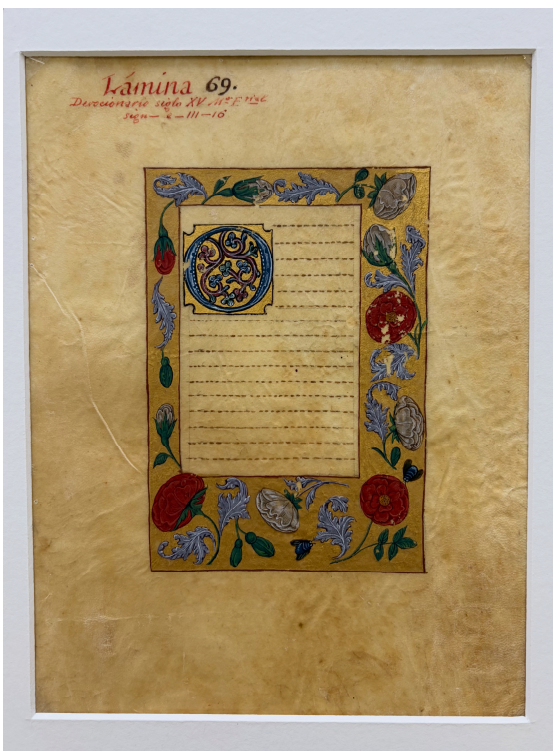 Lámina 69.
Devocionario siglo XV
sign— e —III—10
O